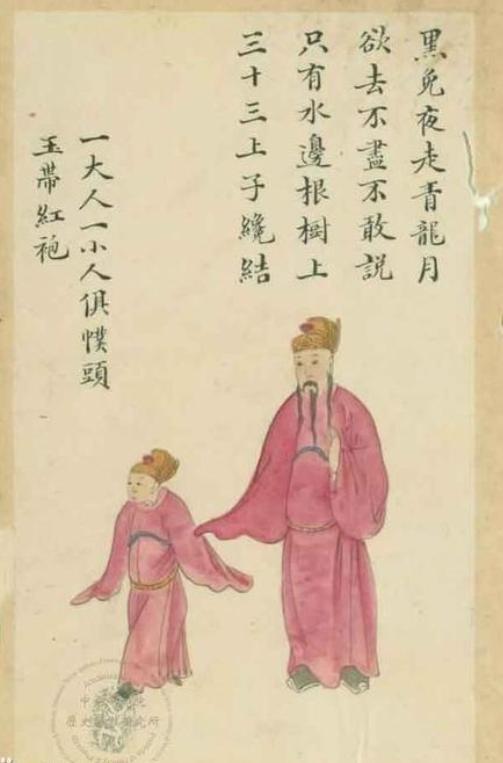 黑免夜走青龍月
欲去不盡不敢説
只有水邊根樹上
三十三上子纔結
一大人一小人俱幞頭
玉帶紅袍